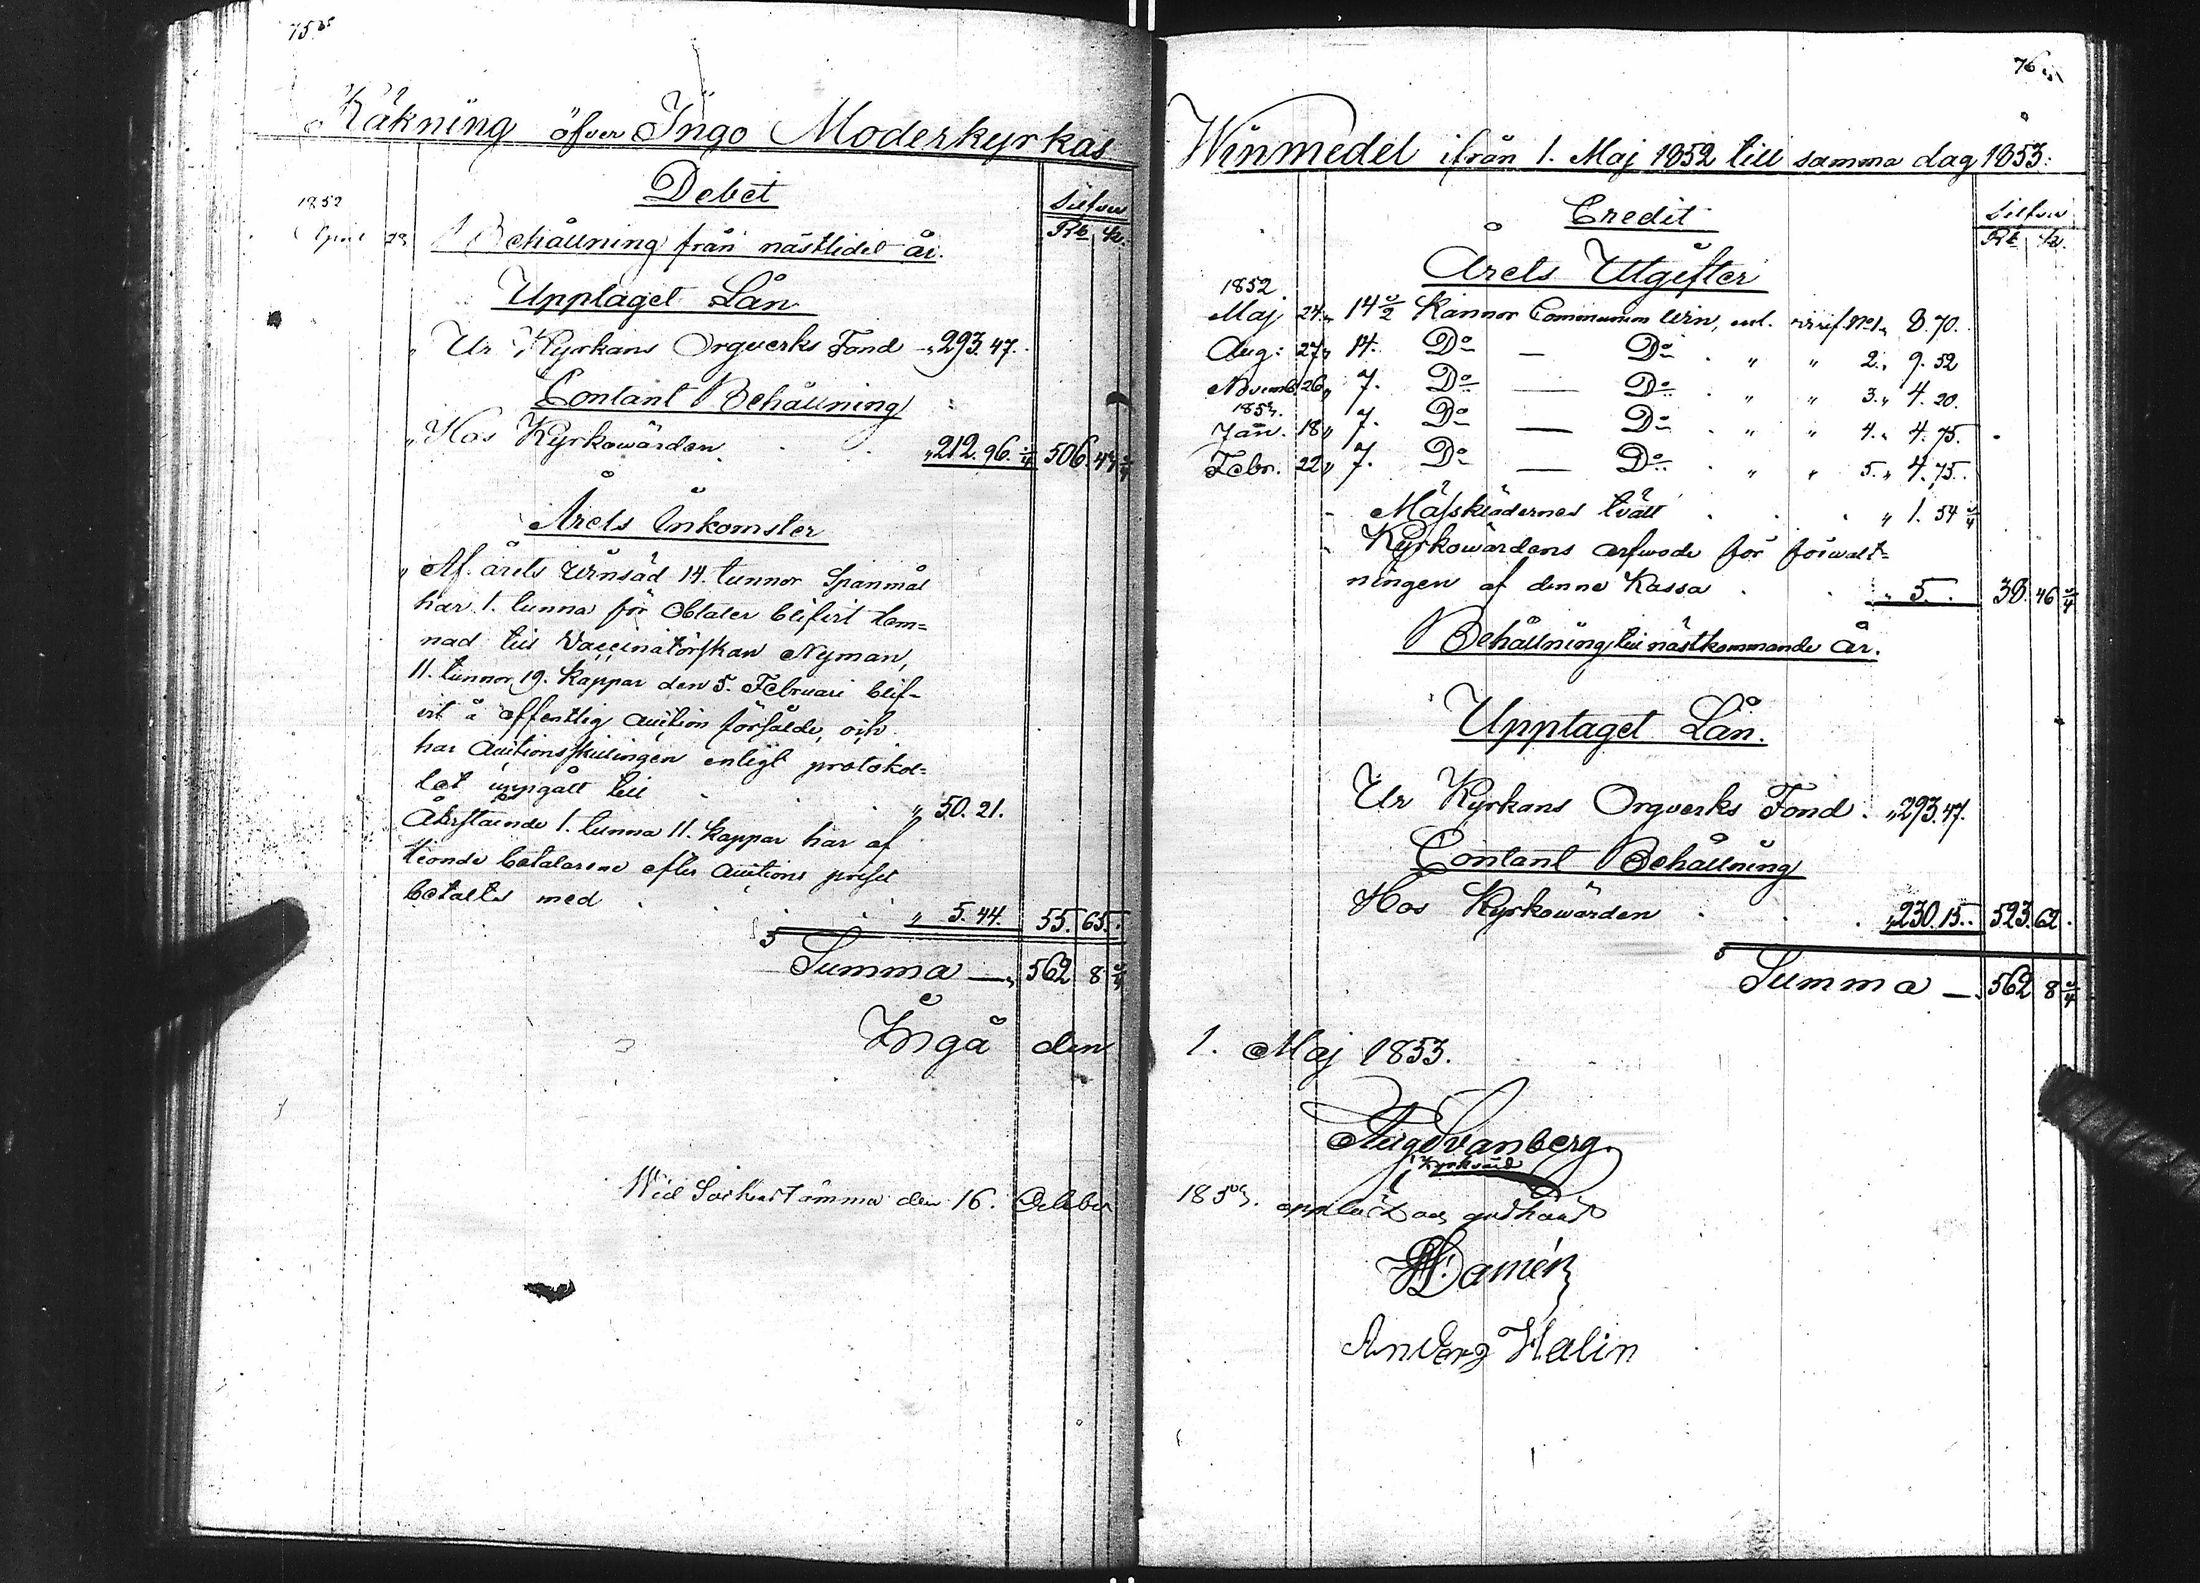 75.
Räkning öfver Ingo Moderkyrkas
Debet
Silfver
Rb k.
1852
April 23 Behållning från nästlidet år.
Upptaget Lån
" Ur Kyrkans Orgverks Fond " 293. 47.
Contant Behållning
" Hos Kyrkowärden " 212. 96. 3/4 506. 43 3/4
Årets Inkomster
" Af årets winsäd 14. tunnor Spanmål
har 1. tunna för Oblater blifvit lem=
nad till Vaccinatörskan Nyman,
11. tunnor 19. Kappar den 5. Februari blif=
vit å offentlig auction försålde, och
har Auctionsskillingen enligt protokol=
let uppgått till " 50. 21.
Återstående 1. tunna 11. kappar har af
tionde betalarene efter auctions priset
betalts med " 5. 44. 55. 65.
Summa — 562 8 3/4
Ingå den
Wid Sockenstämma den 16. October
76
Winmedel ifrån 1. Maj 1852 till samma dag 1853.
Credit
Silfver
Rb k.
Årets Utgifter
1852
Maj 24. " 14 1/2 Kannor Communion win, enl. verif. No 1. " 8. 70.
Aug: 27 " 14. Do — Do " " 2. " 9. 52
Novemb. 26 " 7. Do — Do " " 3. " 4. 20.
1853.
Jan. 18 " 7. Do — Do " " 4. " 4. 75.
Febr. 22 " 7. Do — Do " " 5. " 4. 75.
- Mässklädernes tvätt " 1. 54 3/4
- Kyrkowärdens arfwode för förwalt=
ningen af denna Kassa " 5. . 38. 46 3/4
Behållning till nästkommande år.
Upptaget Lån.
Ur Kyrkans Orgverks Fond. " 293. 47.
Contant Behållning
Hos Kyrkowärden " 230. 15. 523. 62.
Summa — 562 8 3/4
1. Maj 1853.
Aug Svanberg
Kyrkvärd
1853. uppläst och godkänd
Damén
Halin